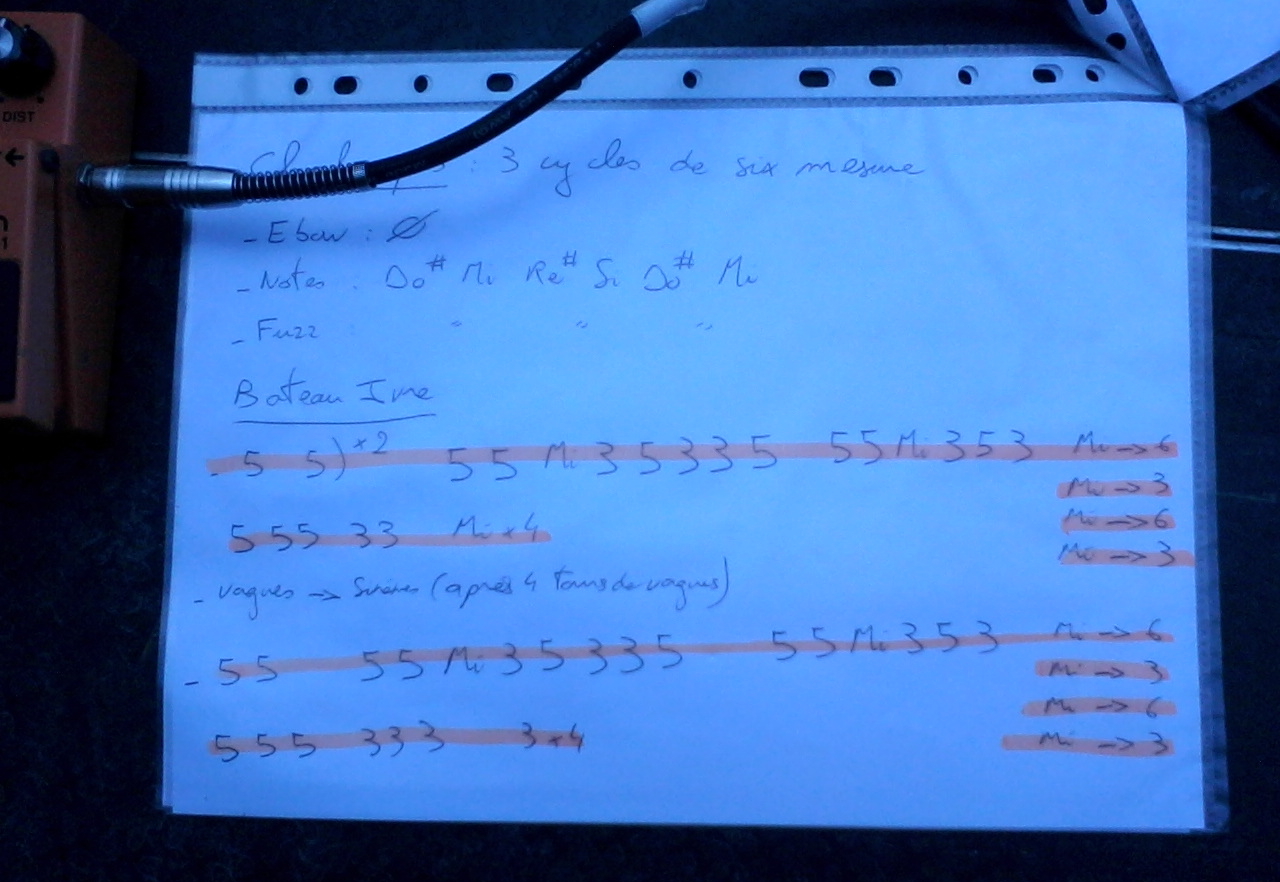 DIST
: 3 cycles de six mesure
- Ebow : Ø
- Notes : Do# Mi Ré# Si Do# Mi
- Fuzz " " "
Bateau Ivre
- 5 5) x2 5 5 Mi 3 5 3 3 5 5 5 Mi 3 5 3 Mi → 6
Mi → 3
5 5 5 3 3 Mi x 4 Mi → 6
Mi → 3
- vagues → Sirènes (après 4 tours de vagues)
- 5 5 5 5 Mi 3 5 3 3 5 5 5 Mi 3 5 3 Mi → 6
Mi → 3
Mi → 6
5 5 5 3 3 3 3 x 4 Mi → 3